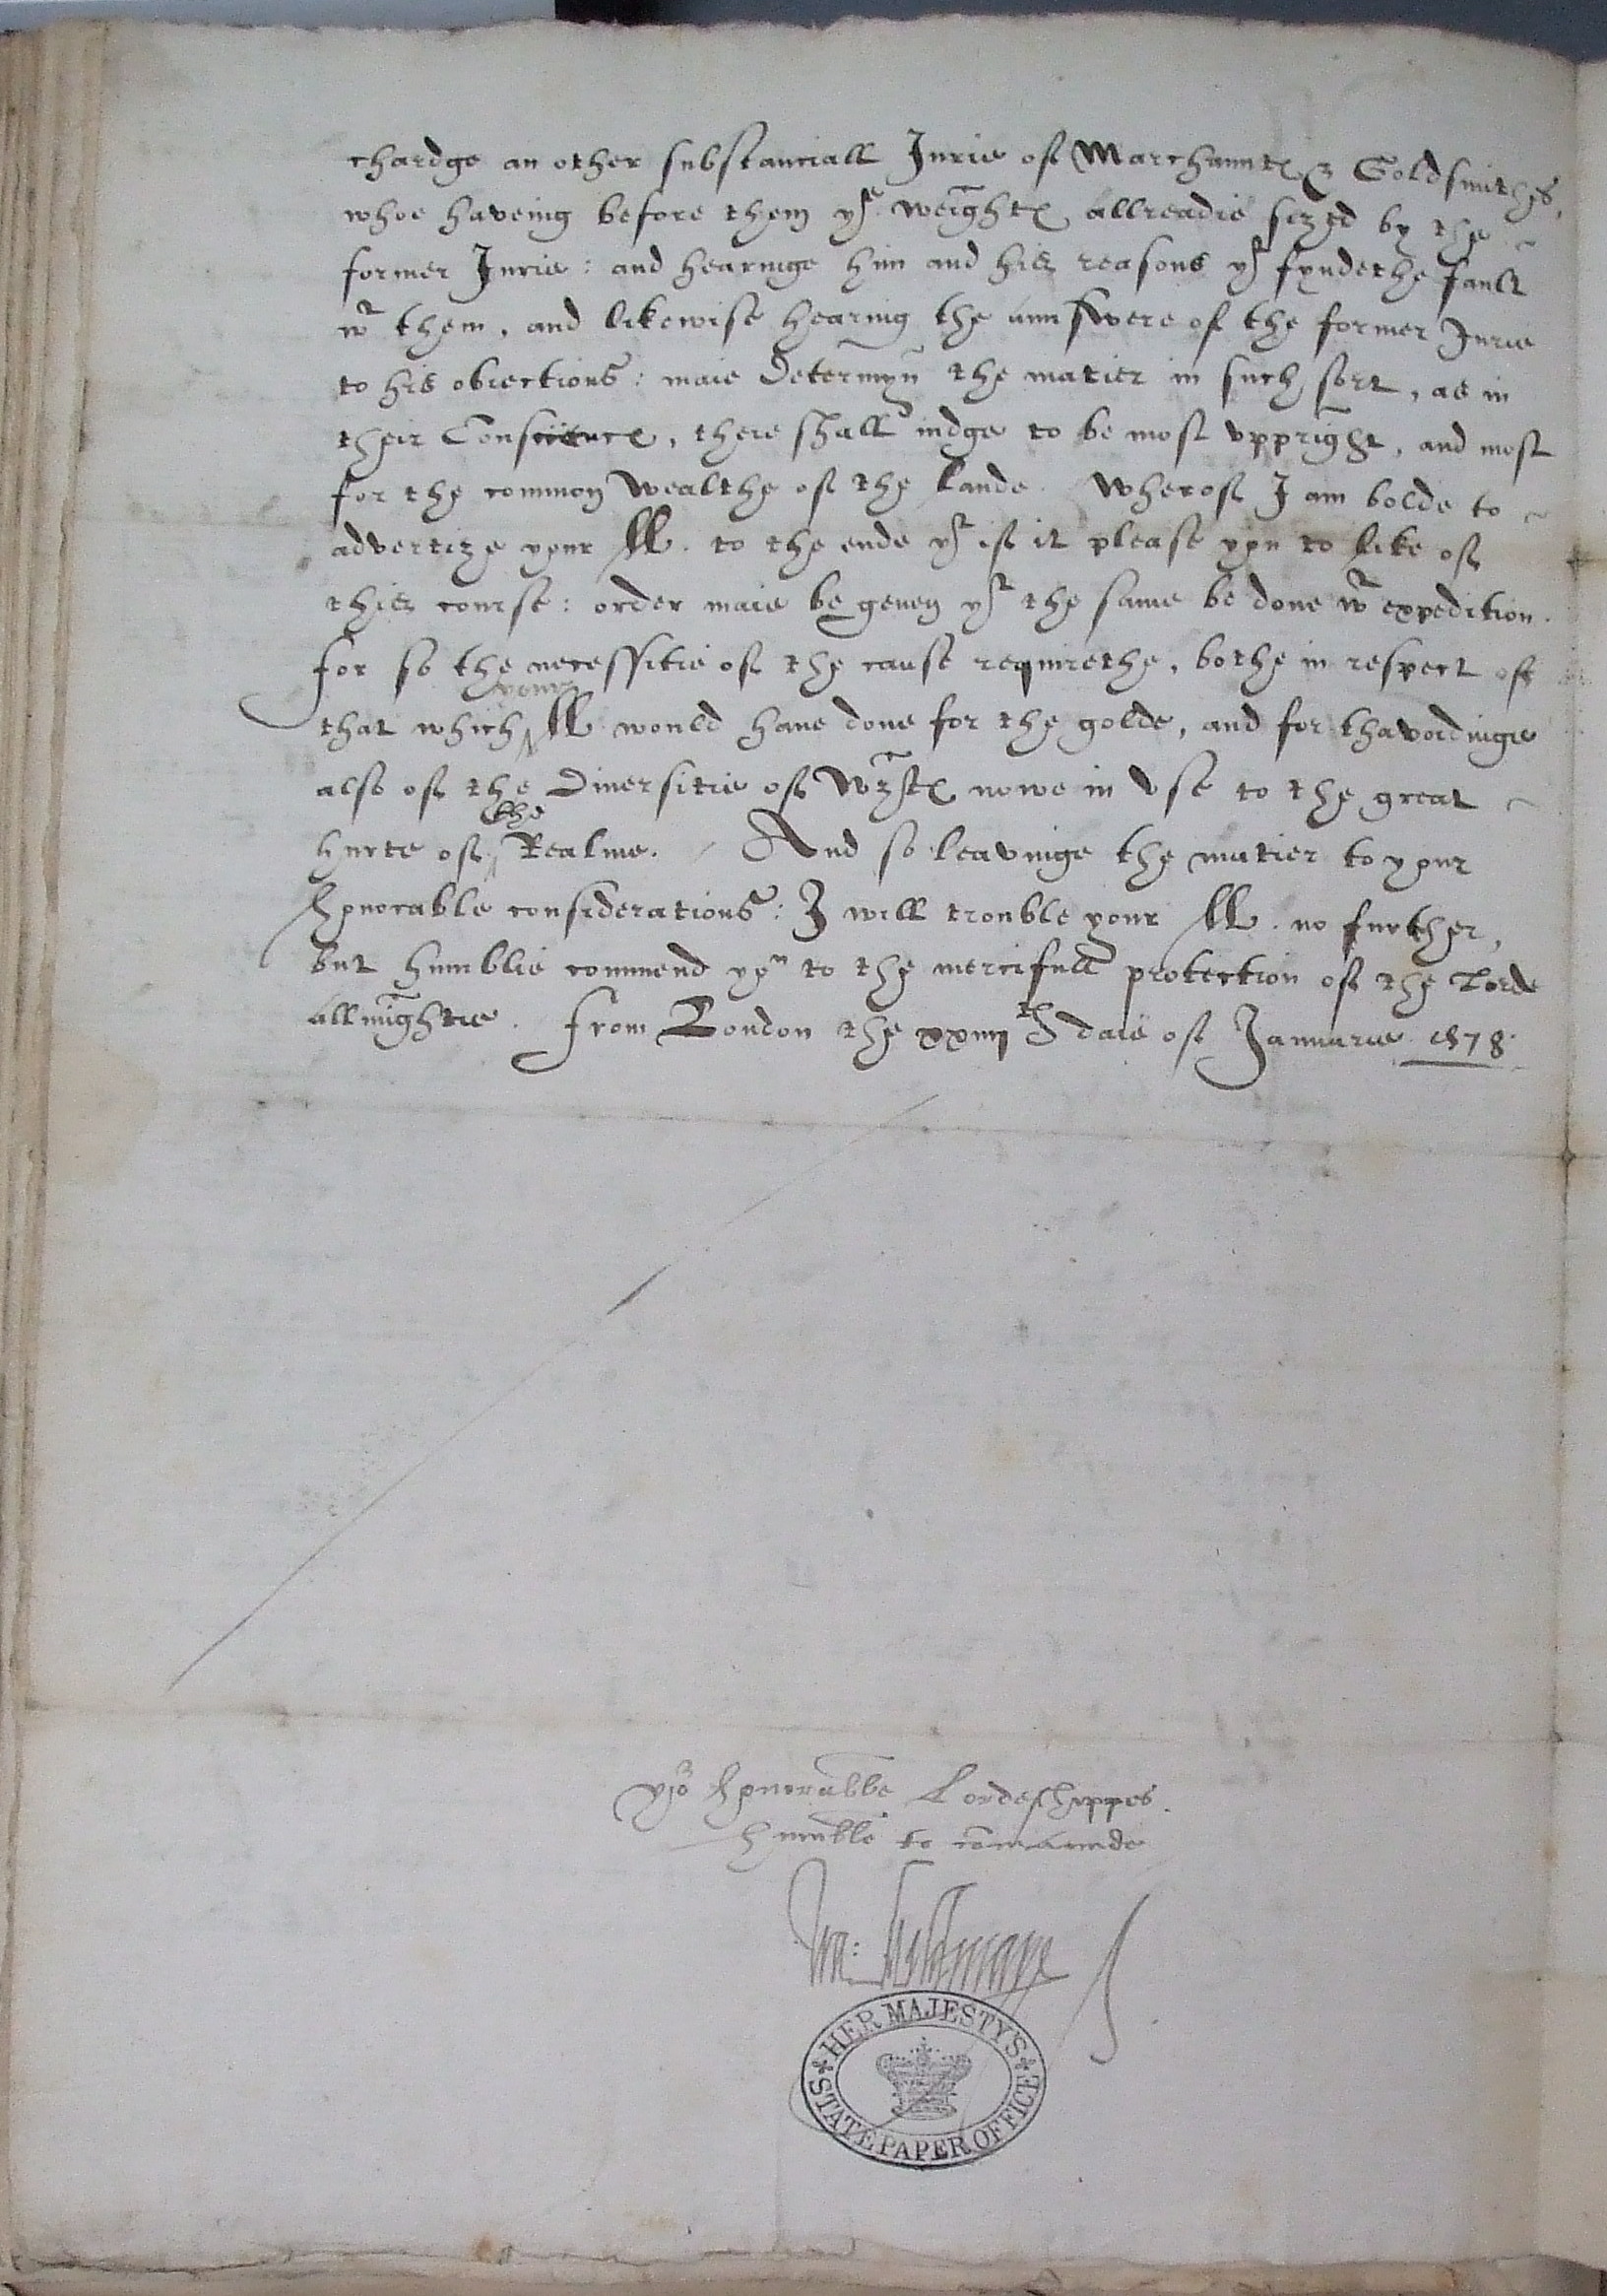 chardge an other substanciall Jurie of Marchauntes & Goldsmithes,
whoe haveing before them yͤ weightes allreadie sized by the
former Jurie : and hearinge him and his reasons yͭ fyndethe fault
wͭ them, and likewise hearing the aunswere of the former Jurie
to his obiections : maie Determyn the matier in such sort, as in
their Conscience, there shall iudge to be most vppright, and most
for the common Wealthe of the Lande. Wherof I am bolde to
advertize your LL. to the ende yͭ if it please you to like of
this course : order maie be geven yͭ the same be done wͭ expedition.
for so the necessitie of the cause requirethe, bothe in respect of
your
that which LL would have done for the golde, and for thavoidinge
also of the Diversitie of wtes nowe in vse to the great
the
hurte of Realme. And so leavinge the matier to your
honorable considerations : I will trouble your LL. no further,
but humblie commend you to the mercifull protection of the Lorde
allmightie. from London the xxiiijth daie of Januarie 1578.
yor honorable Lordeshippes
humble to comaunde
Wa: Mildmaye
HER MAJESTY'S
STATE PAPER OFFICE